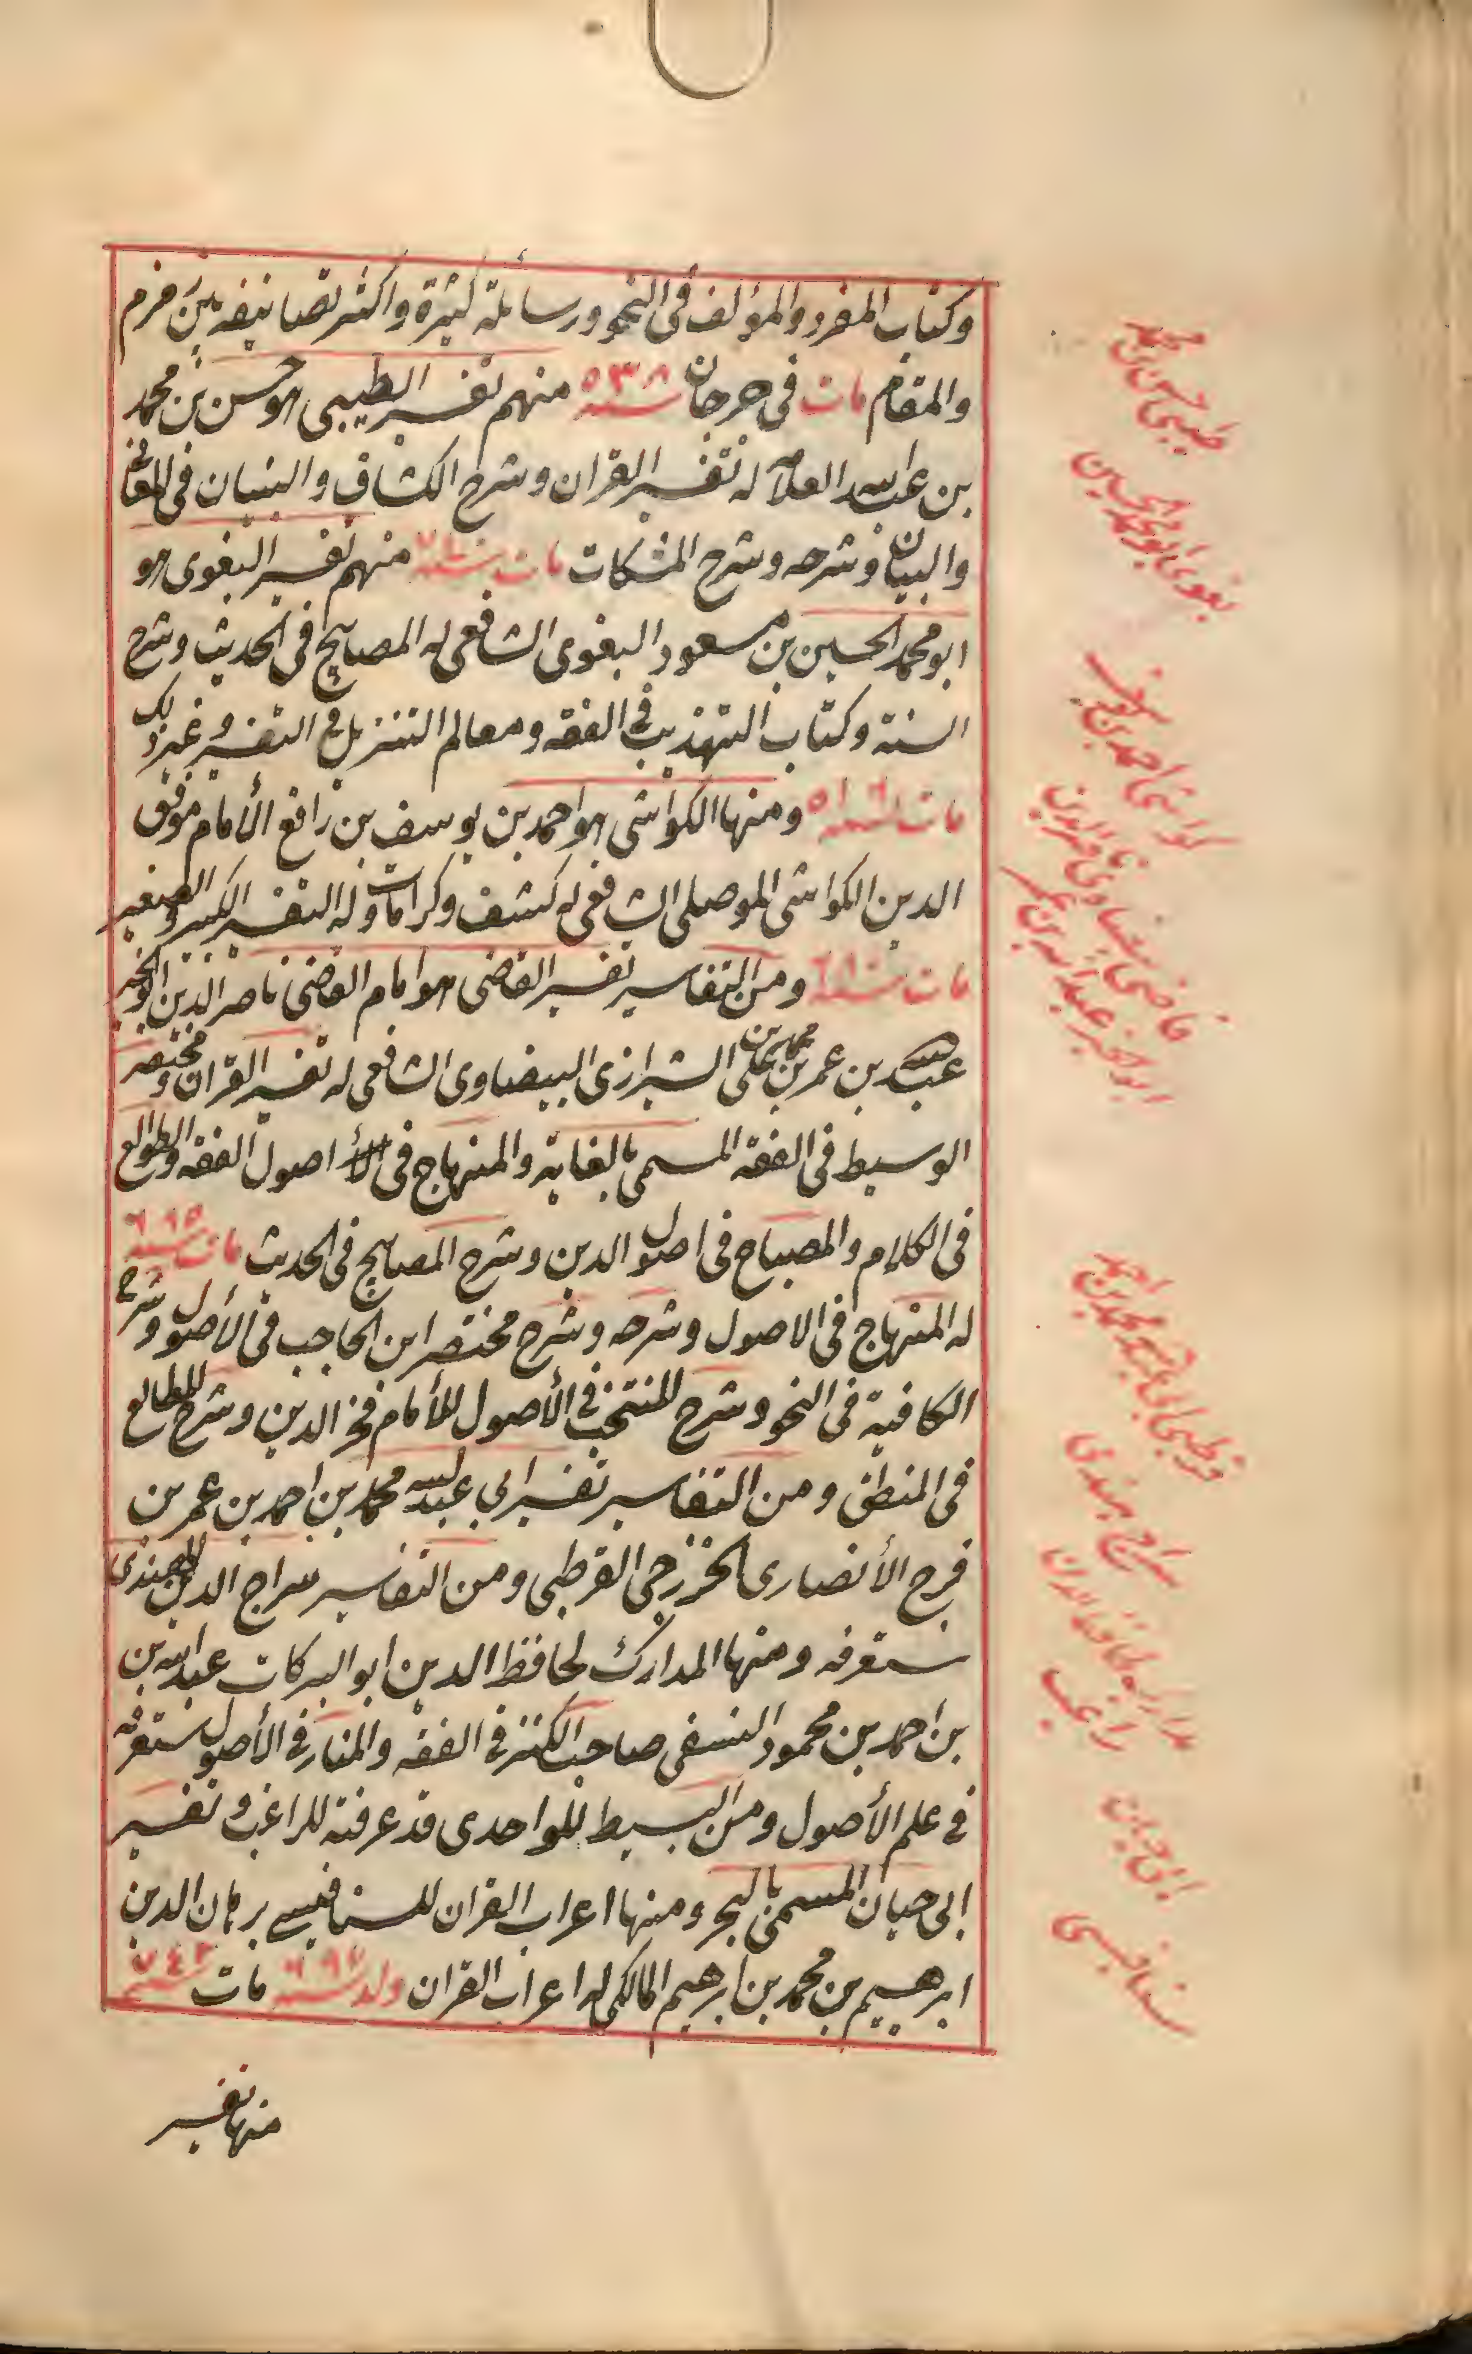 وكتاب المفرد والمؤلف في النحو ورسائله كثيرة واكثر تصانيفه بين مزم
والمقام مات في جرجان سنه ٥٣٨ منهم تفسير الطيبى هو حسن بن محمد
بن عبد الله العلامه له تفسير القران وشرح الكشاف والتبيان في المعاني
والبيان وشرحه وشرح المشكات مات سنه منهم تفسير البغوى هو
ابو محمد الحسين بن مسعود البغوى الشافعى له المصابيح في الحديث وشرح
السنة وكتاب التهذيب في الفقه ومعالم التنزيل في التفسير وغير ذلك
مات سنه ٥١٦ ومنها الكواشى هو احمد بن يوسف بن رافع الأمام موفق
الدين الكواشى الموصلى الشافعى له كشف وكرامات وله التفسير الكبير والصغير
مات سنه ٦٨٠ ومن التفاسير تفسير القاضى هو امام القاضى ناصر الدين ابو الخير
عبد الله بن عمر بن محمد بن على الشيرازى البيضاوى الشافعى له تفسير القران ومختصر
الوسيط في الفقه المسمى بالغاية والمنهاج في اصول الفقه والطوالع
في الكلام والمصباح في اصول الدين وشرح المصابيح في الحديث مات سنه ٦٨٥
له المنهاج في الاصول وشرحه وشرح مختصر ابن الحاجب في الأصول وشرح
الكافية في النحو وشرح المنتخب في الأصول للأمام فخر الدين وشرح المطالع
في المنطق ومن التفاسير تفسير ابي عبد الله محمد بن احمد بن عمر بن
فرح الأنصارى الخزرجى القرطبى ومن التفاسير سراج الدين الهندى
ستعرفه ومنها المدارك لحافظ الدين ابو البركات عبد الله بن
بن احمد بن محمود النسفى صاحب الكنز في الفقه والمنار في الأصول ستعرفه
في علم الأصول ومن البسيط للواحدى قد عرفته للراغب وتفسير
ابى حيان المسمى بالبحر ومنها اعراب القران للسفاقسى برهان الدين
ابرهيم بن محمد بن ابرهيم المالكى له اعراب القران ولد سنه ٦٩٧ مات سنه ٧٤٢
منها تفسير
طيبى حسن بن محمد
بغوى ابو محمد حسين
كواشى احمد بن يوسف
قاضى بيضاوى ناصر الدين
ابو الخير عبد الله بن عمر
قرطبى ابى عبد الله محمد بن احمد
سراج هندى
مدارك لحافظ الدين
راغب
ابى حيان
سفاقسى